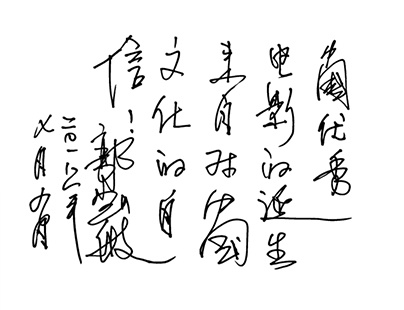 中国优秀
电影的诞生
来自对中国
文化的自
信！
二〇一六年
七月九日